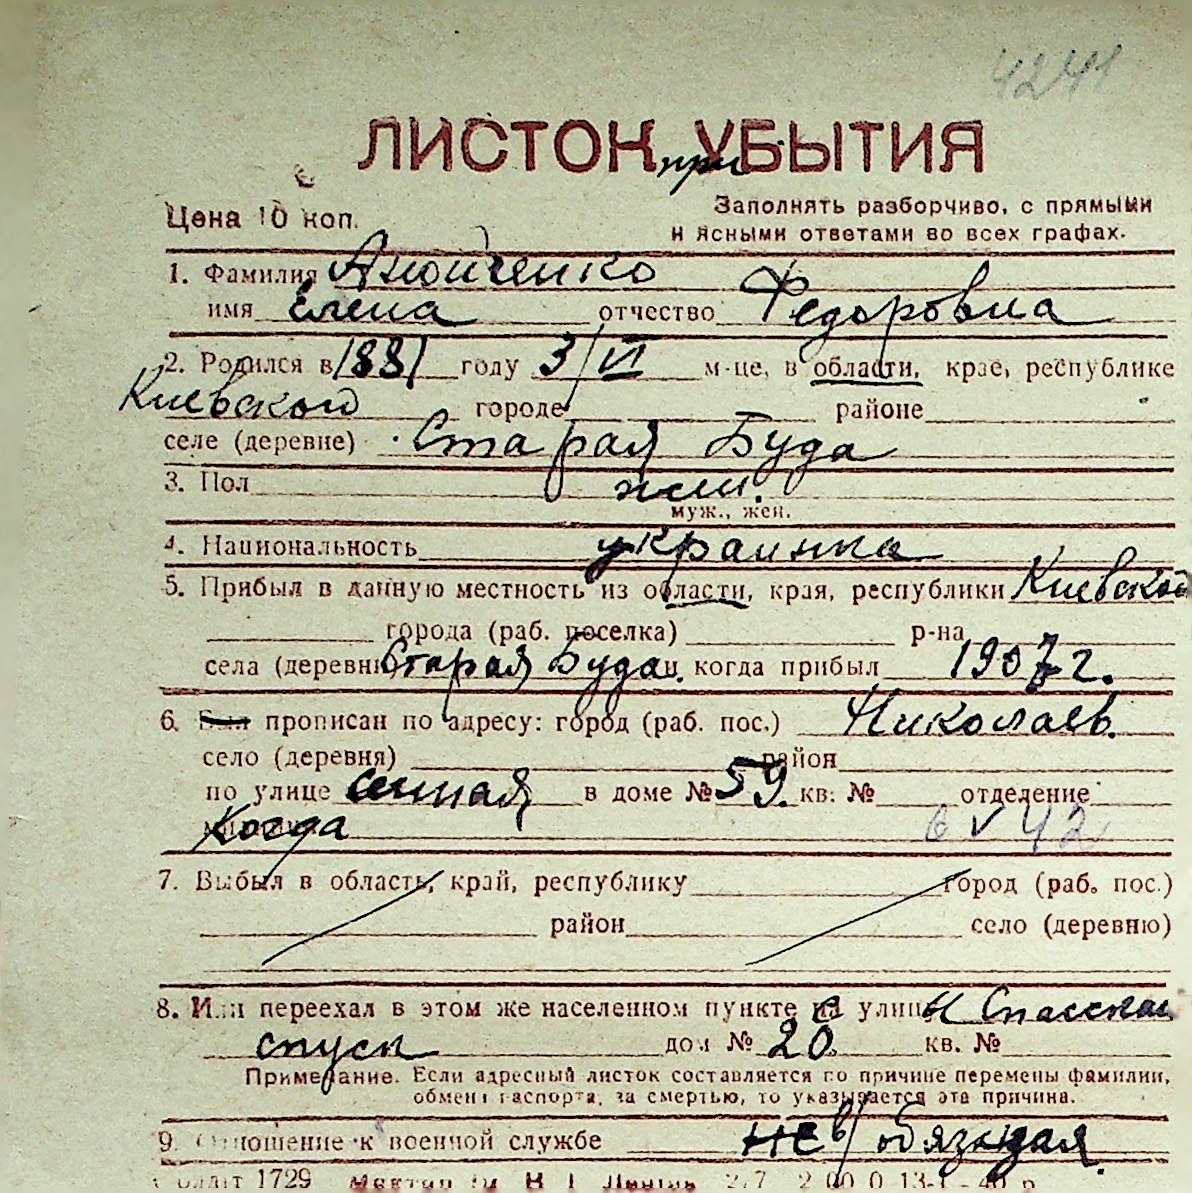 4241
ЛИСТОК при УБЫТИЯ
Цена 10 коп.
Заполнять разборчиво, с прямыми
и ясными ответами во всех графах.
1. Фамилия
имя Елена отчество Федоровна
2. Родился в 1881 году 3/VI м-це, в области, крае, республике
Киевской городе районе
селе (деревне) Старая Буда
3. Пол жен.
муж., жен.
4. Национальность украинка
5. Прибыл в данную местность из области, края, республики Киевской
города (раб. поселка) р-на
села (деревни) Старая Буда и когда прибыл 1907 г.
6. Был прописан по адресу: город (раб. пос.) Николаев.
село (деревня) район
по улице Сенная в доме № 59. кв. № отделение
Когда 6 V 42
7. Выбыл в область, край, республику город (раб. пос.)
район село (деревню)
8. Или переехал в этом же населенном пункте на улицу Спасский
спуск дом № 20 кв. №
Примечание. Если адресный листок составляется по причине перемены фамилии,
обмена паспорта, за смертью, то указывается эта причина.
9. Отношение к военной службе не в/обязаная.
1729